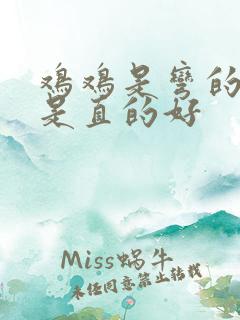 鸡鸡是弯的
是直的好
Miss蜗牛
未经同意禁止转载